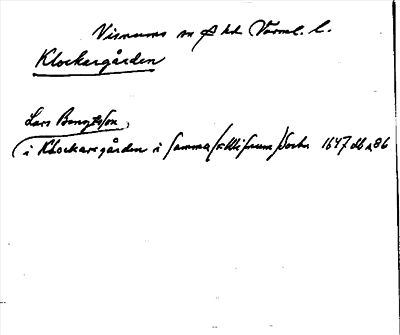 Visnums sn Ø hd Värml. l.
Klockargården
Lars Bengtsson,
i Klockaregården i samma (=Wissnum) Sochn 1647 db s. 86